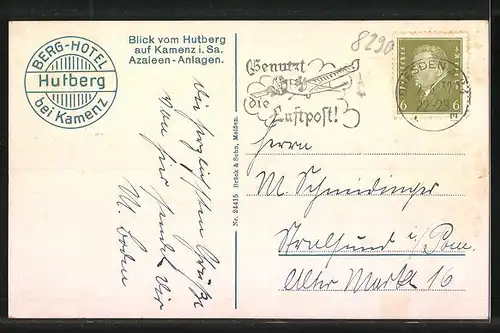 BERG-HOTEL
Hutberg
bei Kamenz
Blick vom Hutberg
auf Kamenz i. Sa.
Azaleen-Anlagen.
8290
Benutzt
die
Luftpost!
DRESDEN
22-23
6 6
Die herzlichsten Grüße
von hier sendet Dir
M.
Nr. 24415 Brück & Sohn, Meißen.
Herrn
M. Schneidinger
Stralsund i/Pom.
Alter Markt 16